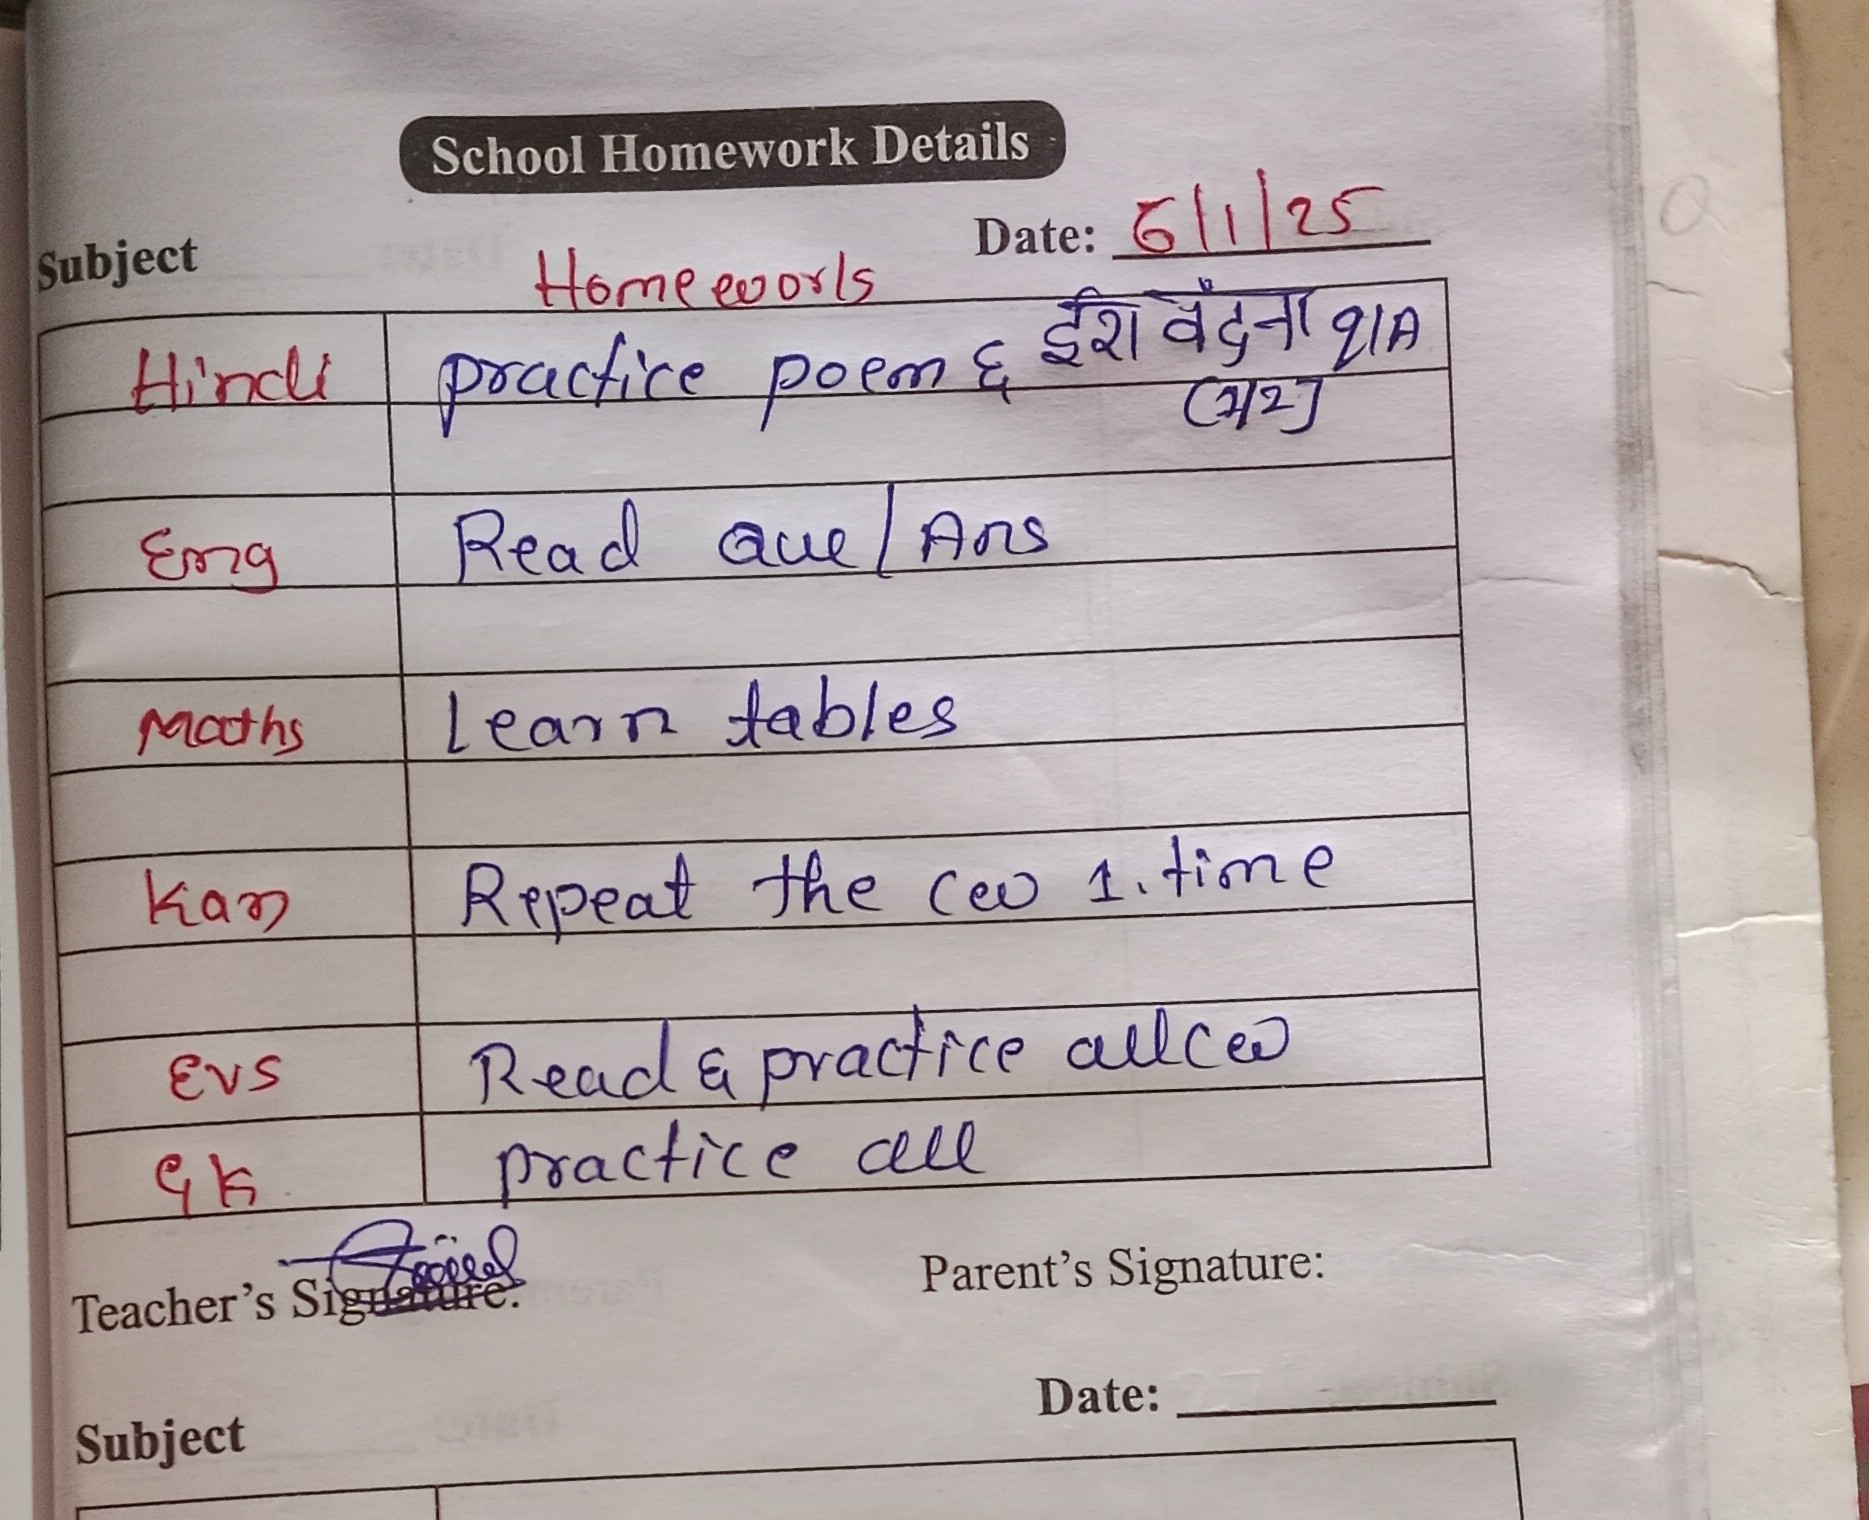 School Homework Details
Subject
Date: 6/1/25
Homework
Hindi practice poem & ईश वंदना q/A
Eng Read Que/Ans
Maths Learn tables
Kan Repeat the cw 1. time
Evs Read & practice all cw
GK practice all
Teacher's Signature:
Parent's Signature:
Date:
Subject